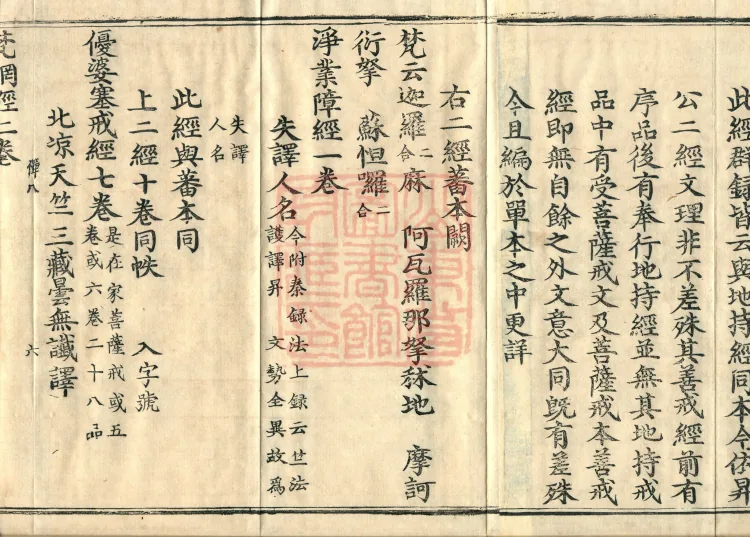 此經群録皆云與地持經同本今依昇
公二經文理非不差殊其善戒經前有
序品後有奉行地持經並無其地持戒
品中有受菩薩戒文及菩薩戒本善戒
經即無自餘之外文意大同旣有差殊
今且編於單本之中更詳
右二經蕃本闕
梵云迦羅二合麻 阿瓦羅那拏秫地 摩訶
衍拏 蘇怛囉二合
淨業障經一卷
失譯人名今附秦録法上録云竺法
護譯昇 文勢全異故爲
失譯
人名
此經與蕃本同
上二經十卷同帙 入字號
優婆塞戒經七卷是在家菩薩戒或五
卷或六卷二十八品
北凉天竺三藏曇無讖譯
六
梵罔經二卷